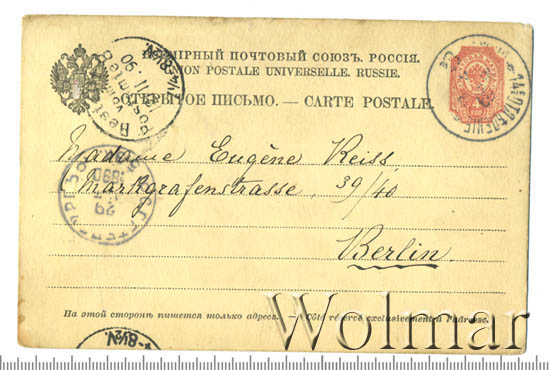 ВСЕМІРНЫЙ ПОЧТОВЫЙ СОЮЗЪ. РОССІЯ.
UNION POSTALE UNIVERSELLE. RUSSIE.
ОТКРЫТОЕ ПИСЬМО. — CARTE POSTALE.
Madame Eugène Reiss,
Markgrafenstrasse, 39/40
Berlin.
На этой сторонѣ пишется только адресъ. — Côté réservé exclusivement à l'adresse.
Wolmar